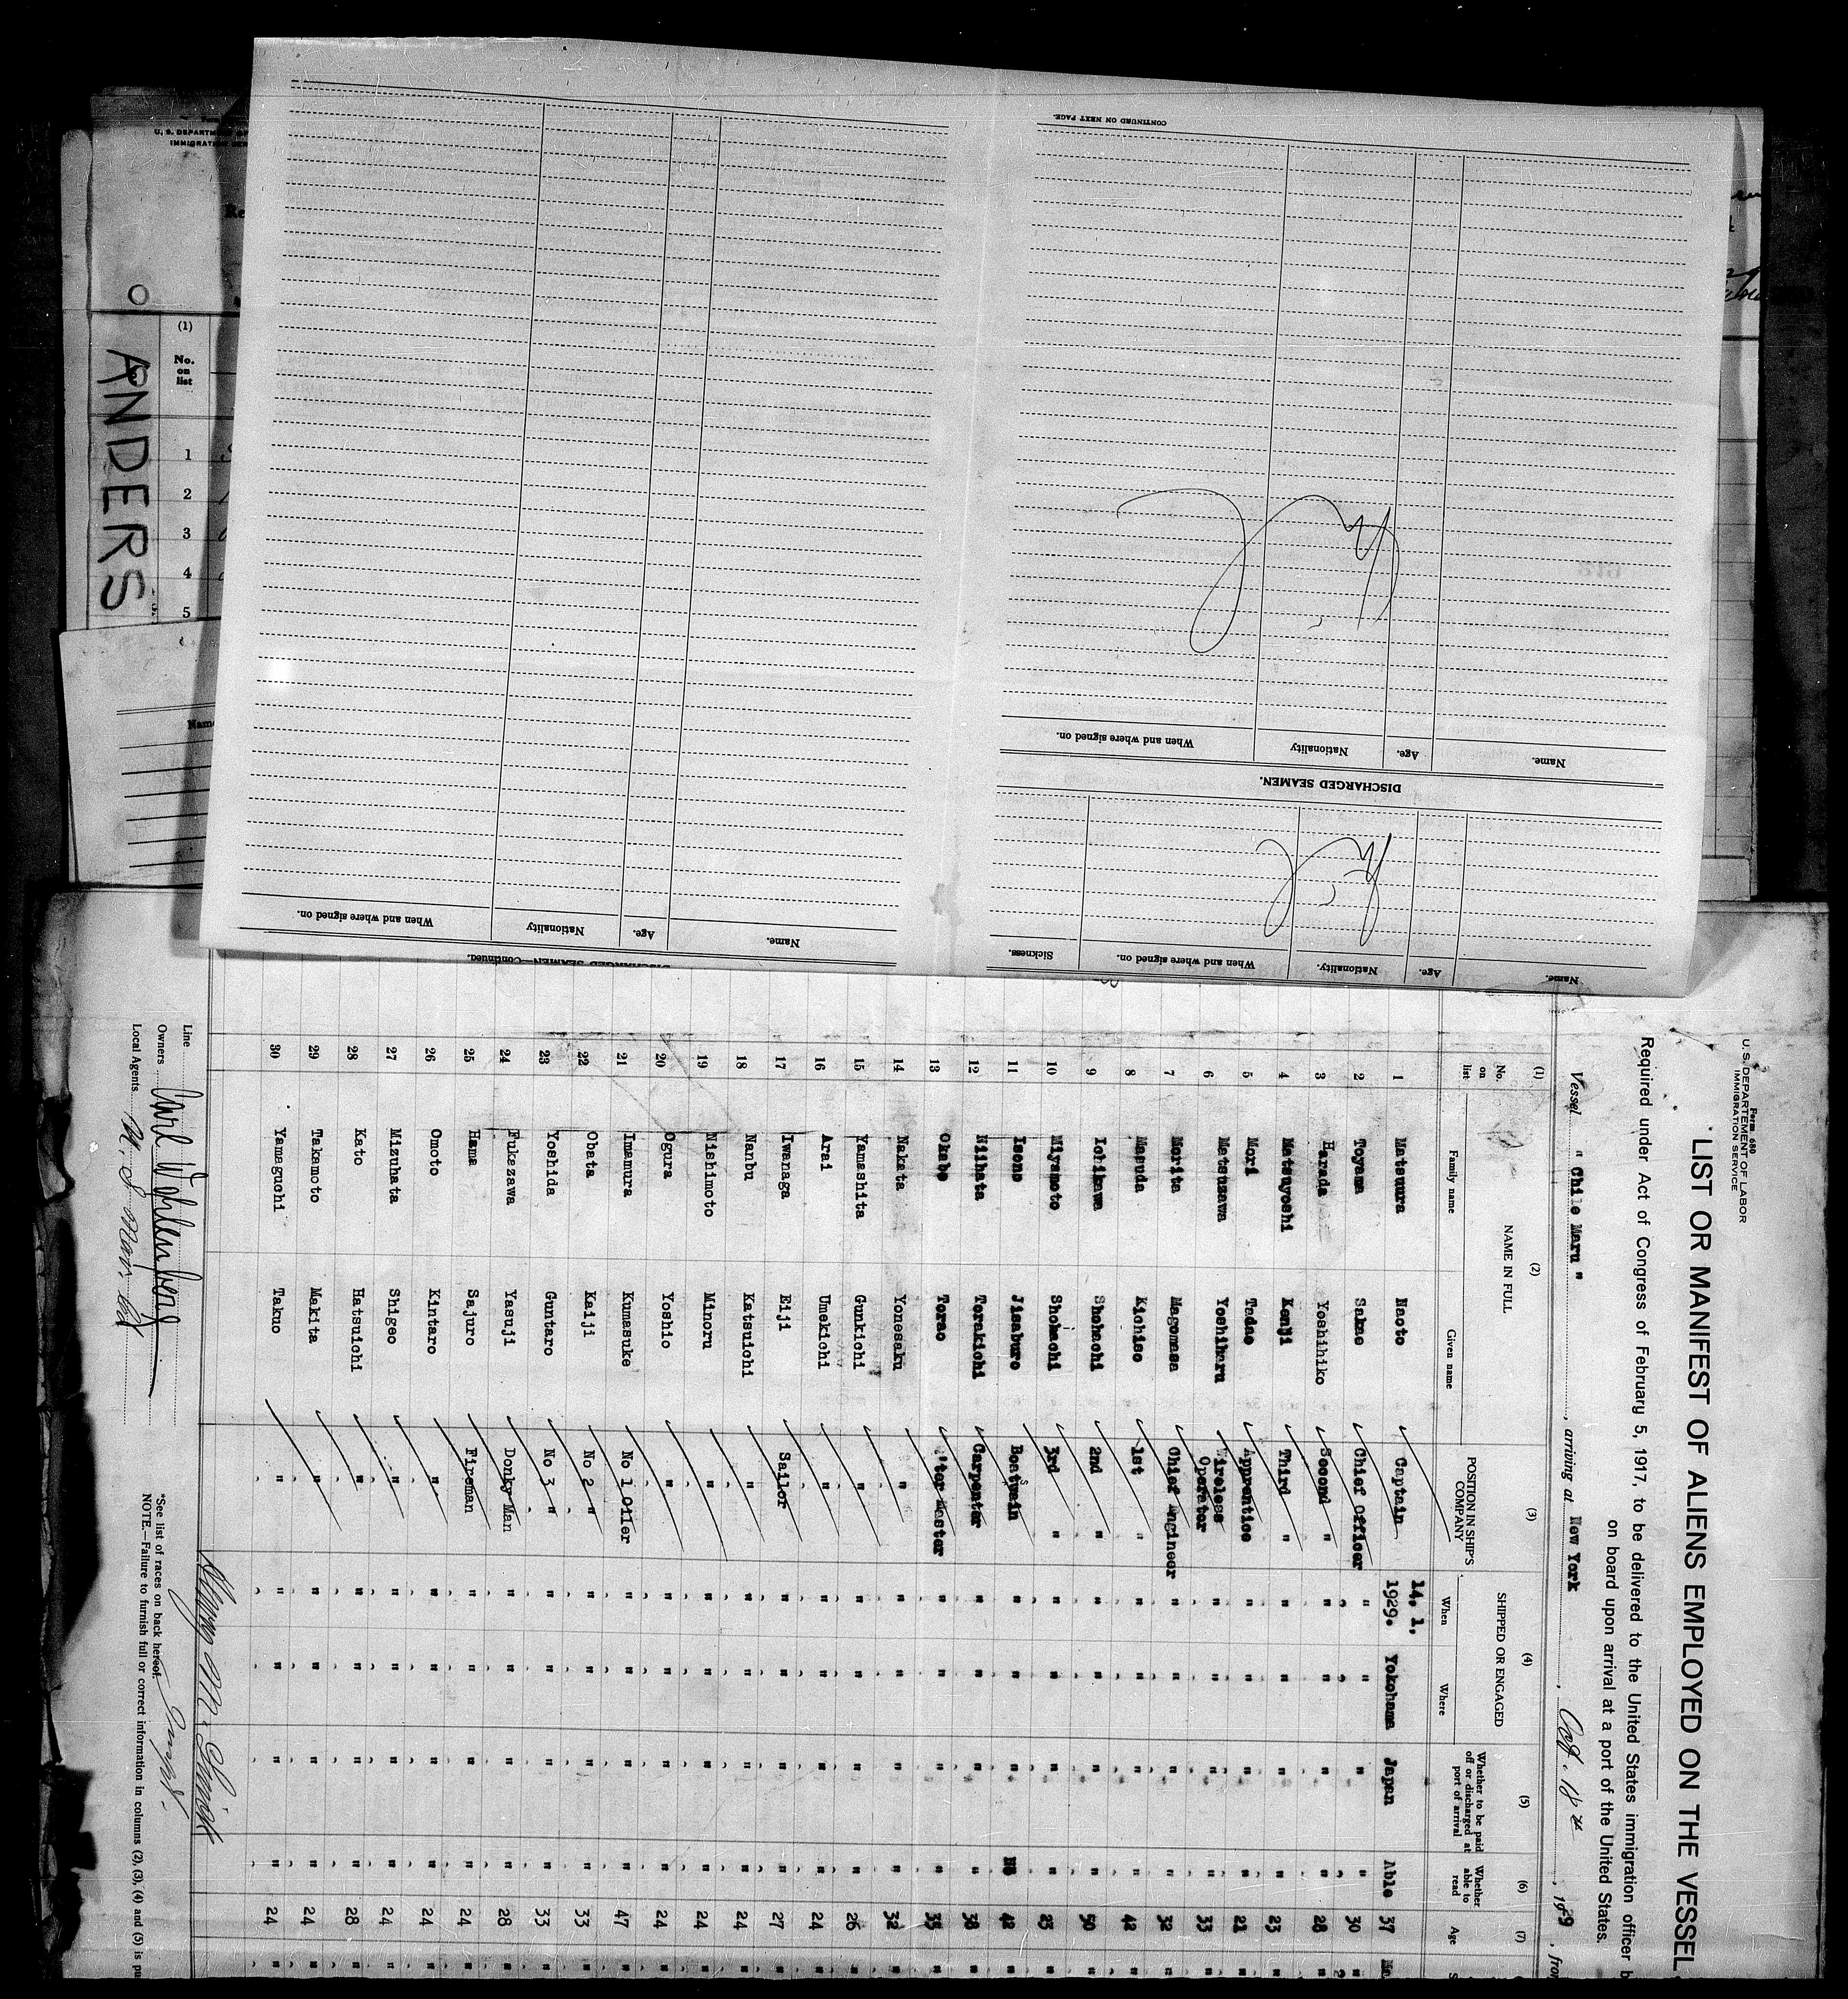 U. S. DEPARTM
IMMIGRATION SER
(1)
No.
on
list
1
2
3
4
5
ANDERS
Name
CONTINUED ON NEXT PAGE.
Name. Age. Nationality When and where signed on.
DISCHARGED SEAMEN.
Name. Age. Nationality. When and where signed on. Sickness.
DISCHARGED SEAMEN—Continued.
Name. Age. Nationality When and where signed on.
Form 680
U. S. DEPARTMENT OF LABOR
IMMIGRATION SERVICE
LIST OR MANIFEST OF ALIENS EMPLOYED ON THE VESSEL
Required under Act of Congress of February 5, 1917, to be delivered to the United States immigration officer b
on board upon arrival at a port of the United States.
Vessel " Chile Maru ", arriving at New York, Oct. 18th, 1929, from
(1) (2) (3) (4) (5) (6) (7)
No. on list NAME IN FULL POSITION IN SHIP'S COMPANY SHIPPED OR ENGAGED Whether to be paid off or discharged at port of arrival Whether able to read Age
Family name Given name When Where
1 Matsuura Naoto Captain 14, 1, 1929. Yokohama Japan Able 37
2 Toyama Sakae Chief Officer " " " " 30
3 Harada Yoshihiko Second " " " " " 28
4 Matsuyoshi Kenji Third " " " " " 23
5 Mori Tadao Apprentice " " " " 21
6 Matsuzawa Yoshiharu Wireless Operator " " " " 33
7 Morita Magomasa Chief Engineer " " " " 32
8 Masuda Kichiso 1st " " " " " 42
9 Ichikawa Shohachi 2nd " " " " " 50
10 Miyamoto Shohachi 3rd " " " " " 23
11 Isono Jisaburo Boatswain " " " No 42
12 Niihata Torakichi Carpenter " " " " 38
13 Okabe Torao Q'ter Master " " " " 35
14 Nakata Yonesaku " " " " " 32
15 Yamashita Gunkichi " " " " " 26
16 Arai Umekichi " " " " " 24
17 Iwanaga Eiji Sailor " " " " 27
18 Nanbu Katsuichi " " " " " 24
19 Nishimoto Minoru " " " " " 24
20 Ogura Yoshio " " " " " 24
21 Imamura Kumasuke No 1 Oiler " " " " 47
22 Obata Kaiji No 2 " " " " " 33
23 Yoshida Guntaro No 3 " " " " " 33
24 Fukazawa Yasuji Donky Man " " " " 28
25 Hama Sajuro Fireman " " " " 24
26 Omoto Kintaro " " " " " 24
27 Mizuhata Shigeo " " " " " 24
28 Kato Hatsuichi " " " " " 28
29 Takamoto Makita " " " " " 24
30 Yamaguchi Takuo " " " " " 24
Line
Owners
Local Agents
*See list of races on back hereof.
NOTE.—Failure to furnish full or correct information in columns (2), (3), (4) and (5) is pu